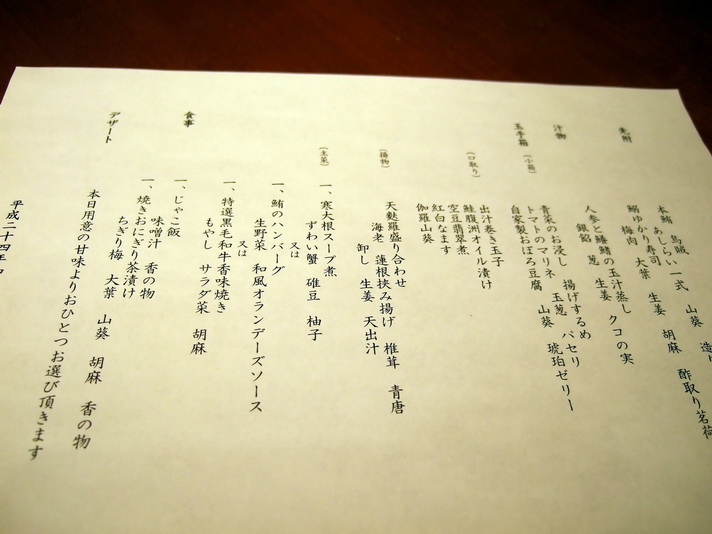 先附
本鮪 烏賊 山葵
あしらい一式
鰯ゆかり寿司 生姜 胡麻 酢取り茗荷
梅肉 大葉
汁物
人参と鱶鰭の玉汁蒸し クコの実
銀餡 葱 生姜
玉手箱
(小鉢)
青菜のお浸し 揚げするめ
トマトのマリネ 玉葱 パセリ 琥珀ゼリー
自家製おぼろ豆腐 山葵
(口取り)
出汁巻き玉子
鮭腹洲オイル漬け
空豆翡翠煮
紅白なます
伽羅山葵
(揚物)
天麩羅盛り合わせ
海老 蓮根挟み揚げ 椎茸 青唐
卸し 生姜 天出汁
(主菜)
一、寒大根スープ煮
ずわい蟹 碓豆 柚子
又は
一、鮪のハンバーグ
生野菜 和風オランデーズソース
又は
一、特選黒毛和牛香味焼き
もやし サラダ菜 胡麻
食事
一、じゃこ飯
味噌汁 香の物
一、焼きおにぎり茶漬け
ちぎり梅 大葉 山葵 胡麻 香の物
デザート
本日用意の甘味よりおひとつお選び頂きます
平成二十四年